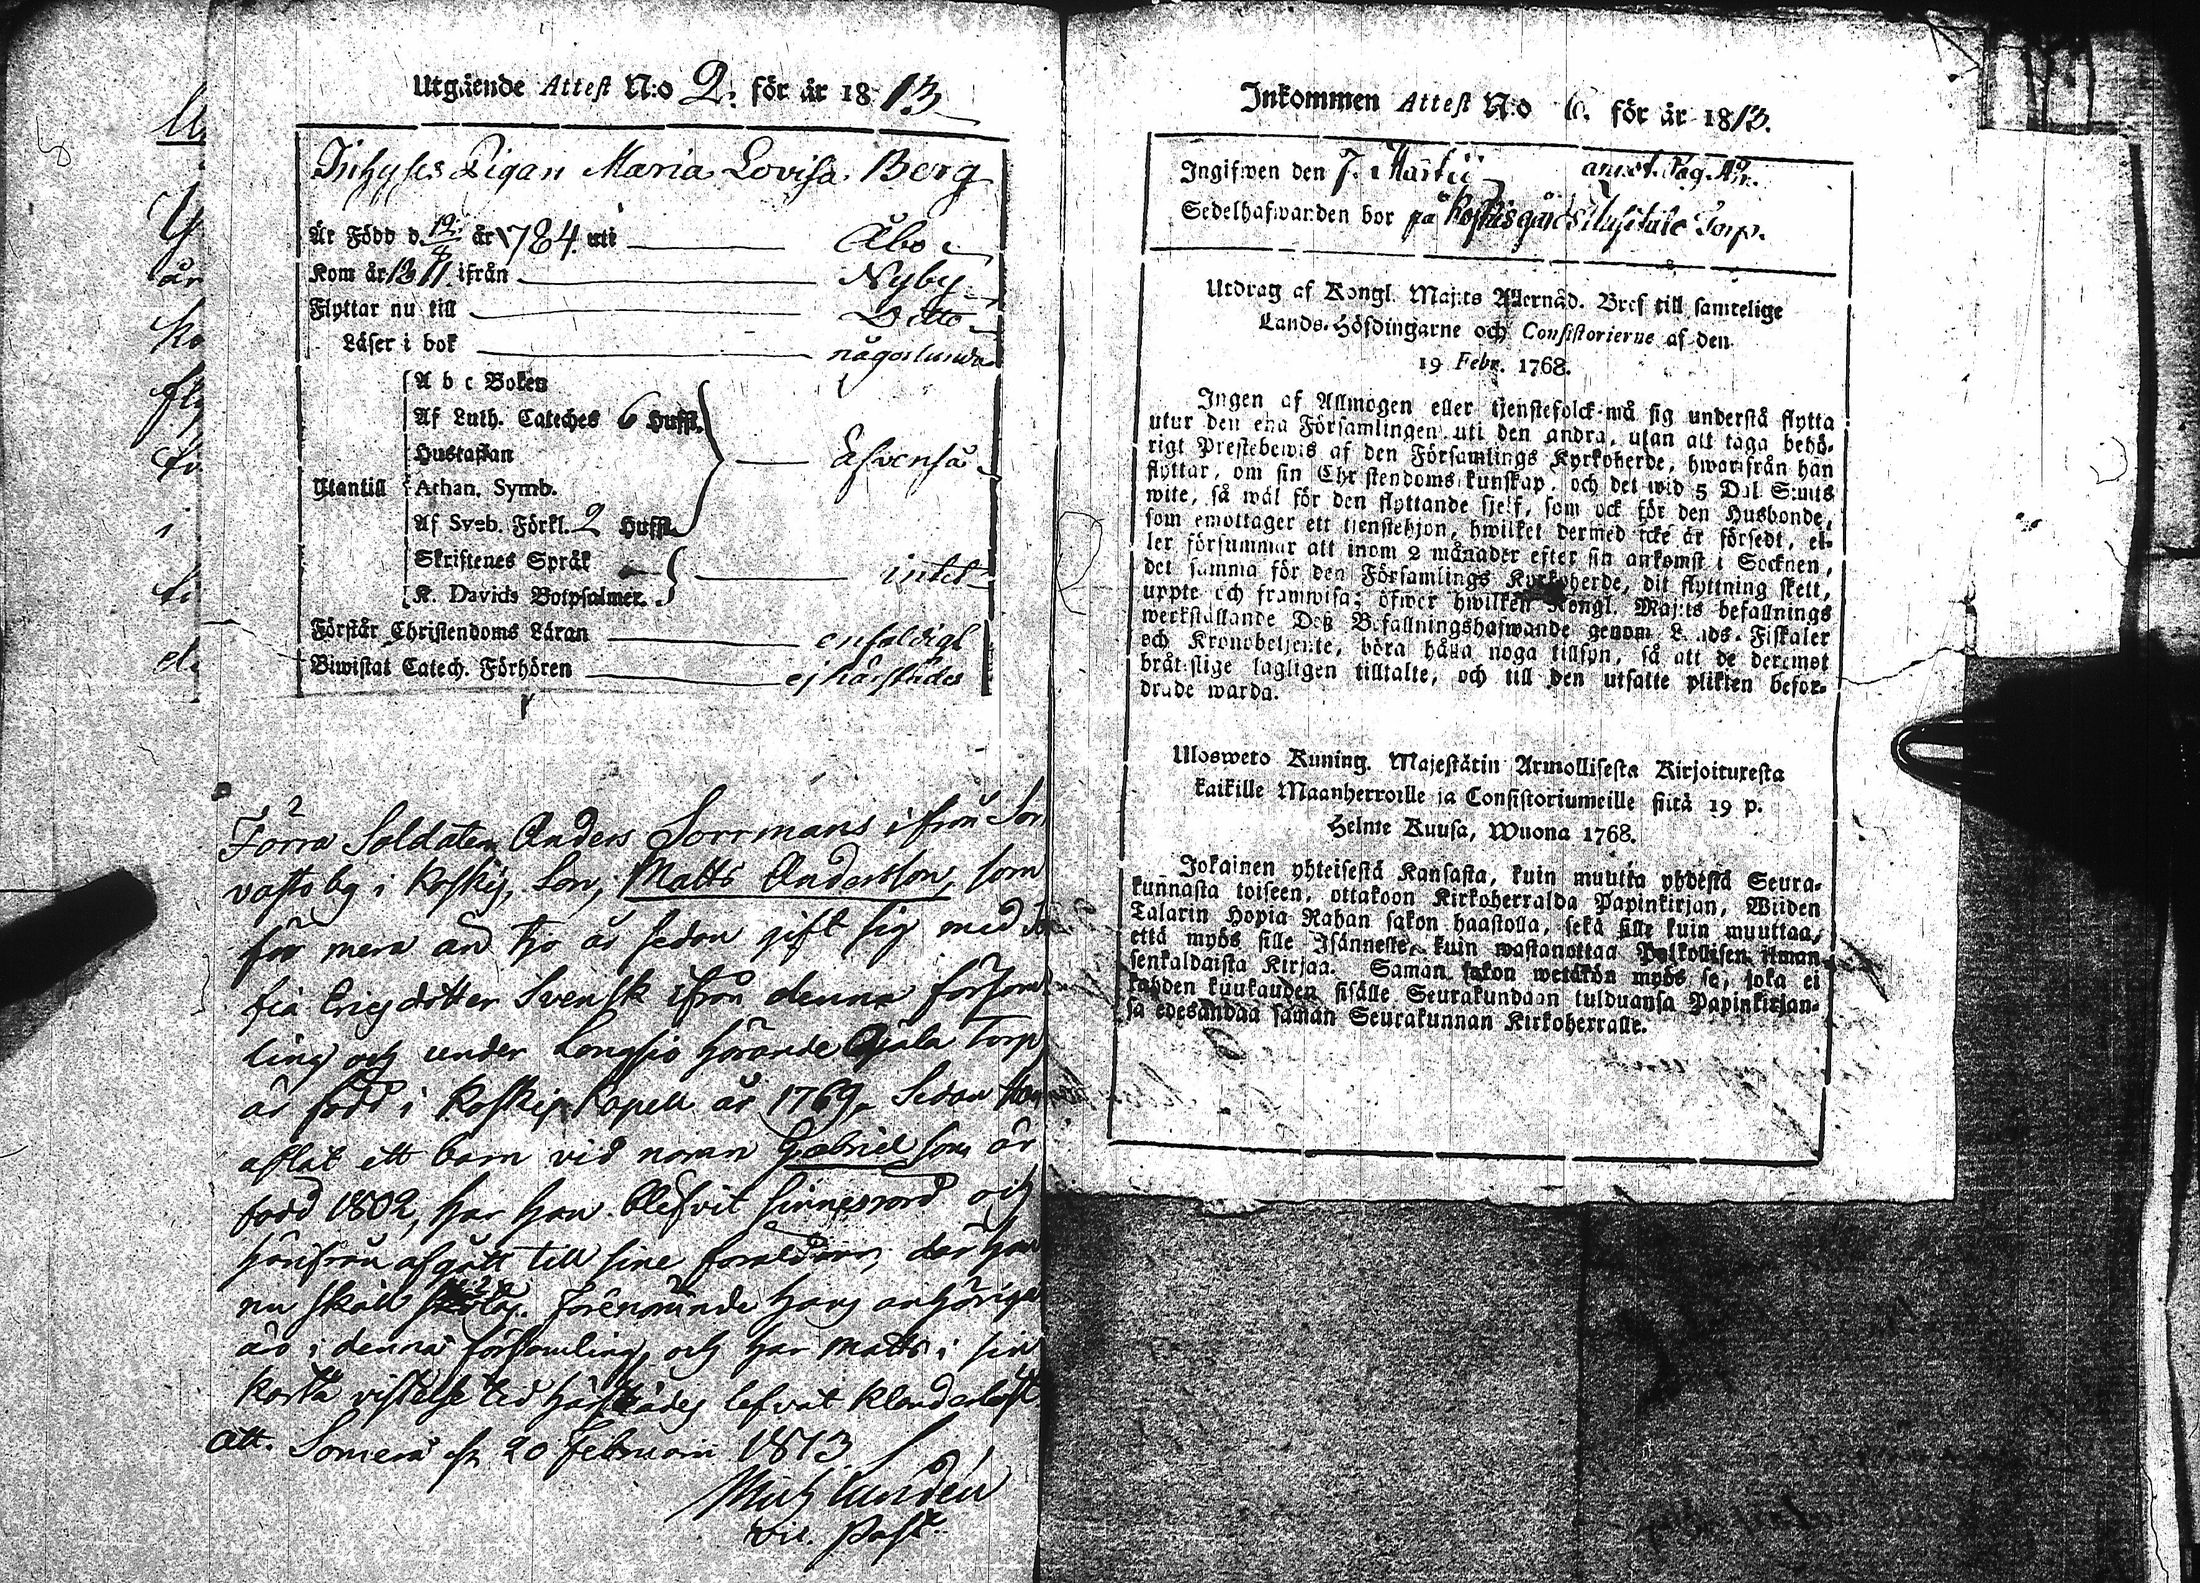 Utgående Attest N:o 2. för år 1813
Inhyses Pigan Maria Lovisa Berg
Är Född d. 12/8 år 1784 uti Åbo
Kom år 1811 ifrån Nyby
Flyttar nu till Ditto
Läser i bok någorlunda
A b c Boken
Af Luth. Cateches 6 Hufst.
Hustaflan
Utantill Athan. Symb. Äfvenså
Af Sveb. Förkl. 2 Hufst.
Skriftenes Språk
K. Davids Botpsalmer. intet
Förstår Christendoms Läran enfaldigt
Biwistat Catech. Förhören ej härstädes
Förra Soldaten Anders Sorrmans ifrån
vasto by i Koskis, Son, Matts Andersson, som
för mera än tjo år sedan gift sig med
fia Ericsdotter Svensk ifrån denna församl
ling och under Längsjo hörande Ojala Torp
är född i Koskis Kapell år 1769. Sedan han
aflat ett barn vid namn Gabriel som är
född 1802, har han blefvit sinnesrörd och
härifrån afgått till sine föräldrar, där han
nu skall Förenämnde hans anhörige
äro i denna församling, och har Matts i sin
korta vistelse tid härstädes lefvat klanderlöst
Att. Somero d. 20 Februarii 1813.
Mich Lundén
Vic. Past.
Inkommen Attest N:o 6. för år 1813.
Ingifwen den 7. Martii annot. Pag.
Sedelhafwanden bor på Koskisgårds Torp.
Utdrag af Kongl. Maj:ts Allernåd. Bref till samtelige
Lands-Höfdingarne och Consistorierne af den
19 Febr. 1768.
Ingen af Allmogen eller tjenstefolck må sig understå flytta
utur den ena Församlingen uti den andra, utan att taga behö-
rigt Prestebewis af den Församlings Kyrkoherde, hwarifrån han
flyttar, om sin Christendoms kunskap, och det wid 5 Dal. S:mts
wite, så wäl för den flyttande sjelf, som ock för den Husbonde,
som emottager ett tjenstehjon, hwilket dermed icke är försedt, el-
ler försummar att inom 2 månader efter sin ankomst i Socknen,
det samma för den Församlings Kyrkoherde, dit flyttning skett,
uppte och framwisa; öfwer hwilken Kongl. Maj:ts befallnings
werkställande Deß Befallningshafwande genom Lands-Fiskaler
och Kronobetjente, böra hålla noga tillsyn, så att de deremot
bråtslige lagligen tilltalte, och till den utsatte plikten befor-
drade warda.
Ulosweto Kuning. Majestätin Armollisesta Kirjoituxesta
kaikille Maanherroille ja Consistoriumeille siitä 19 p.
Helme Kuusa, Wuona 1768.
Jokainen yhteisestä Kansasta, kuin muutta yhdestä Seura-
kunnasta toiseen, ottakoon Kirkoherralda Papinkirjan, Wiiden
Talarin Hopia Rahan sakon haastolla, sekä sille kuin muuttaa,
että myös sille Isännelle, kuin wastanottaa Palkollisen ilman
senkaldaista Kirjaa. Saman sakon wetäkön myös se, joka ei
kahden kuukauden sisälle Seurakundaan tulduansa Papinkirjan-
sa edesandaa saman Seurakunnan Kirkoherralle.